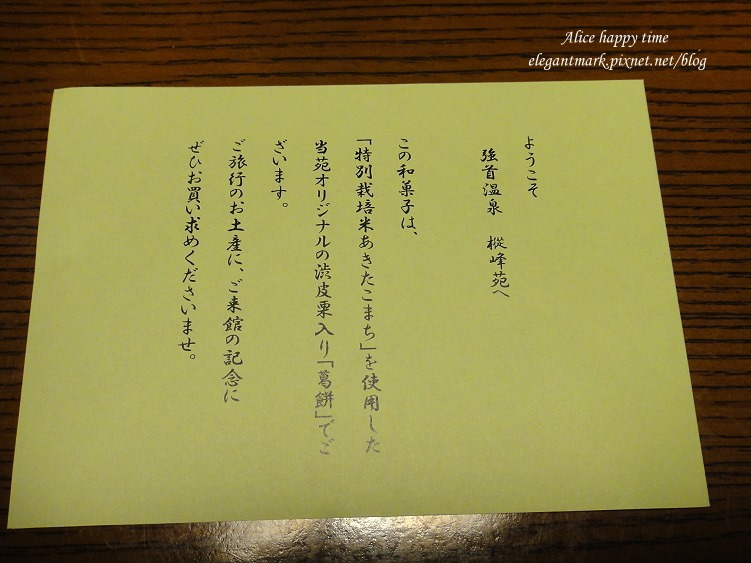 Alice happy time
elegantmark.pixnet.net/blog
ようこそ
強首温泉　樅峰苑へ
この和菓子は、
「特別栽培米あきたこまち」を使用した
当苑オリジナルの渋皮栗入り「葛餅」でご
ざいます。
ご旅行のお土産に、ご来館の記念に
ぜひお買い求めくださいませ。